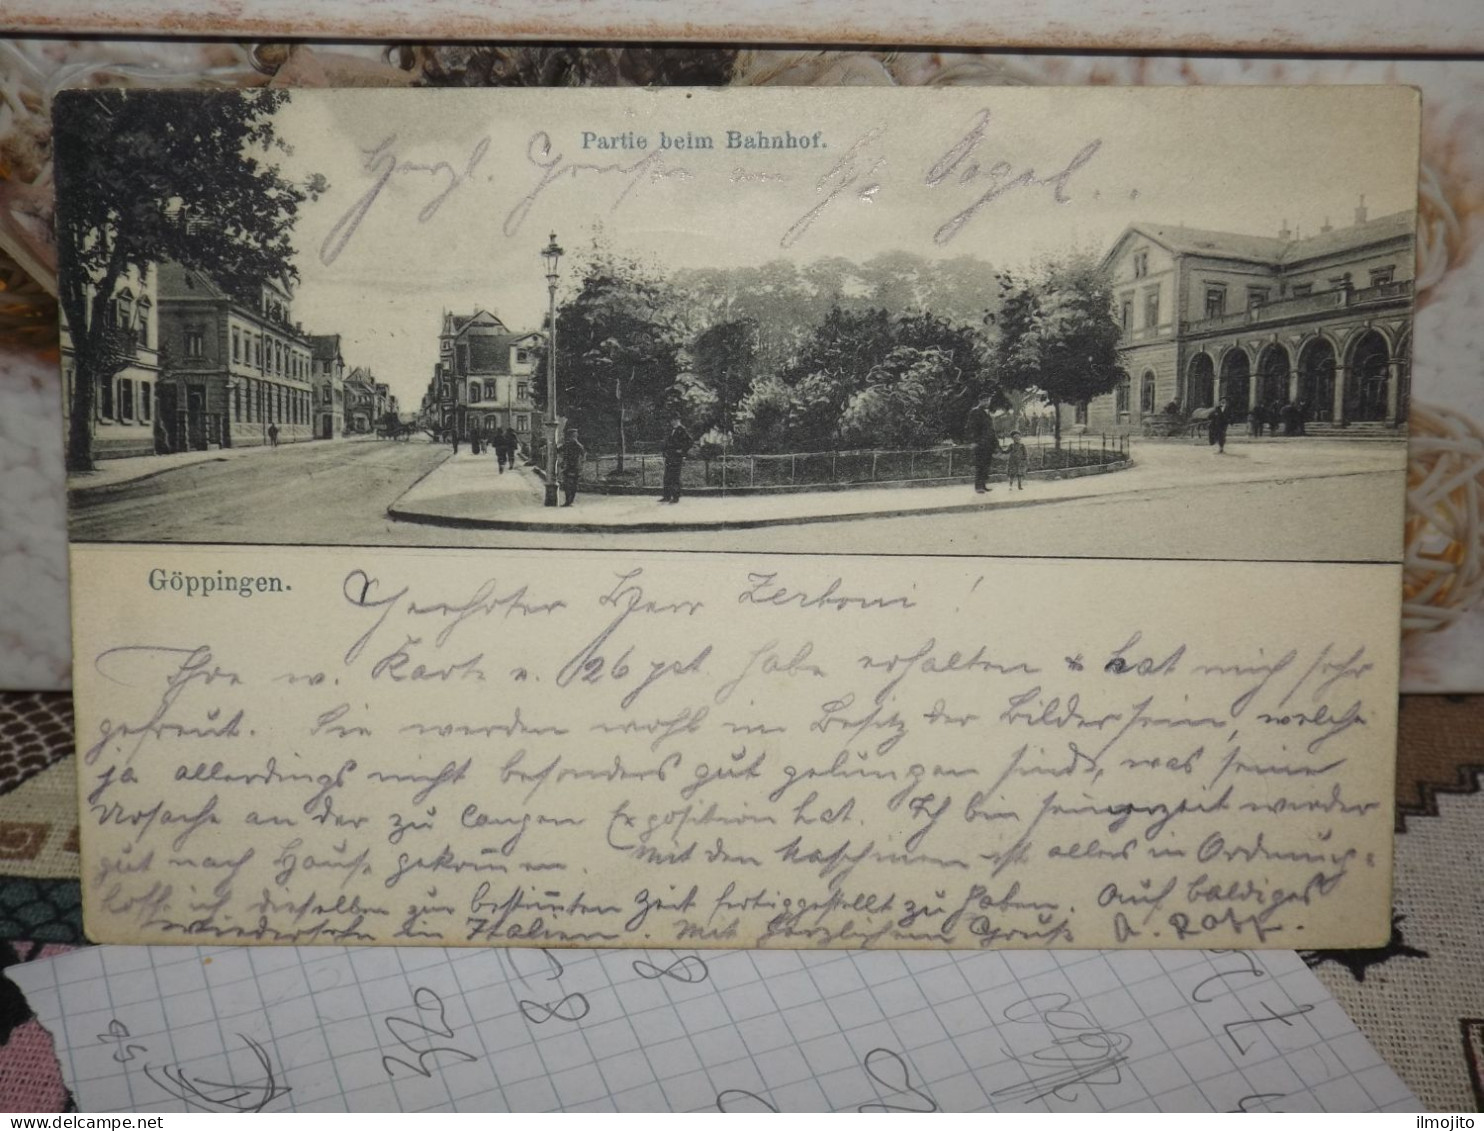 Partie beim Bahnhof.
Herzl. Grüsse an Hr. Vogel..
Göppingen.
Geehrter Herr Zerboni!
Ihre w. Karte v. 26 pst. habe erhalten & hat mich sehr
gefreut. Sie werden wohl im Besitz der Bilder sein, welche
ja allerdings nicht besonders gut gelungen sind, was seine
Ursache an der zu langen Exposition hat. Ich bin seinerzeit wieder
gut nach Hause gekom̄en. Mit den Maschinen ist alles in Ordnung,
hoffe ich dieselben zur bestim̄ten Zeit fertiggestellt zu haben. Auf baldiges
Wiedersehen in Italien. Mit herzlichem Gruß A.
352
8
8
ilmojito